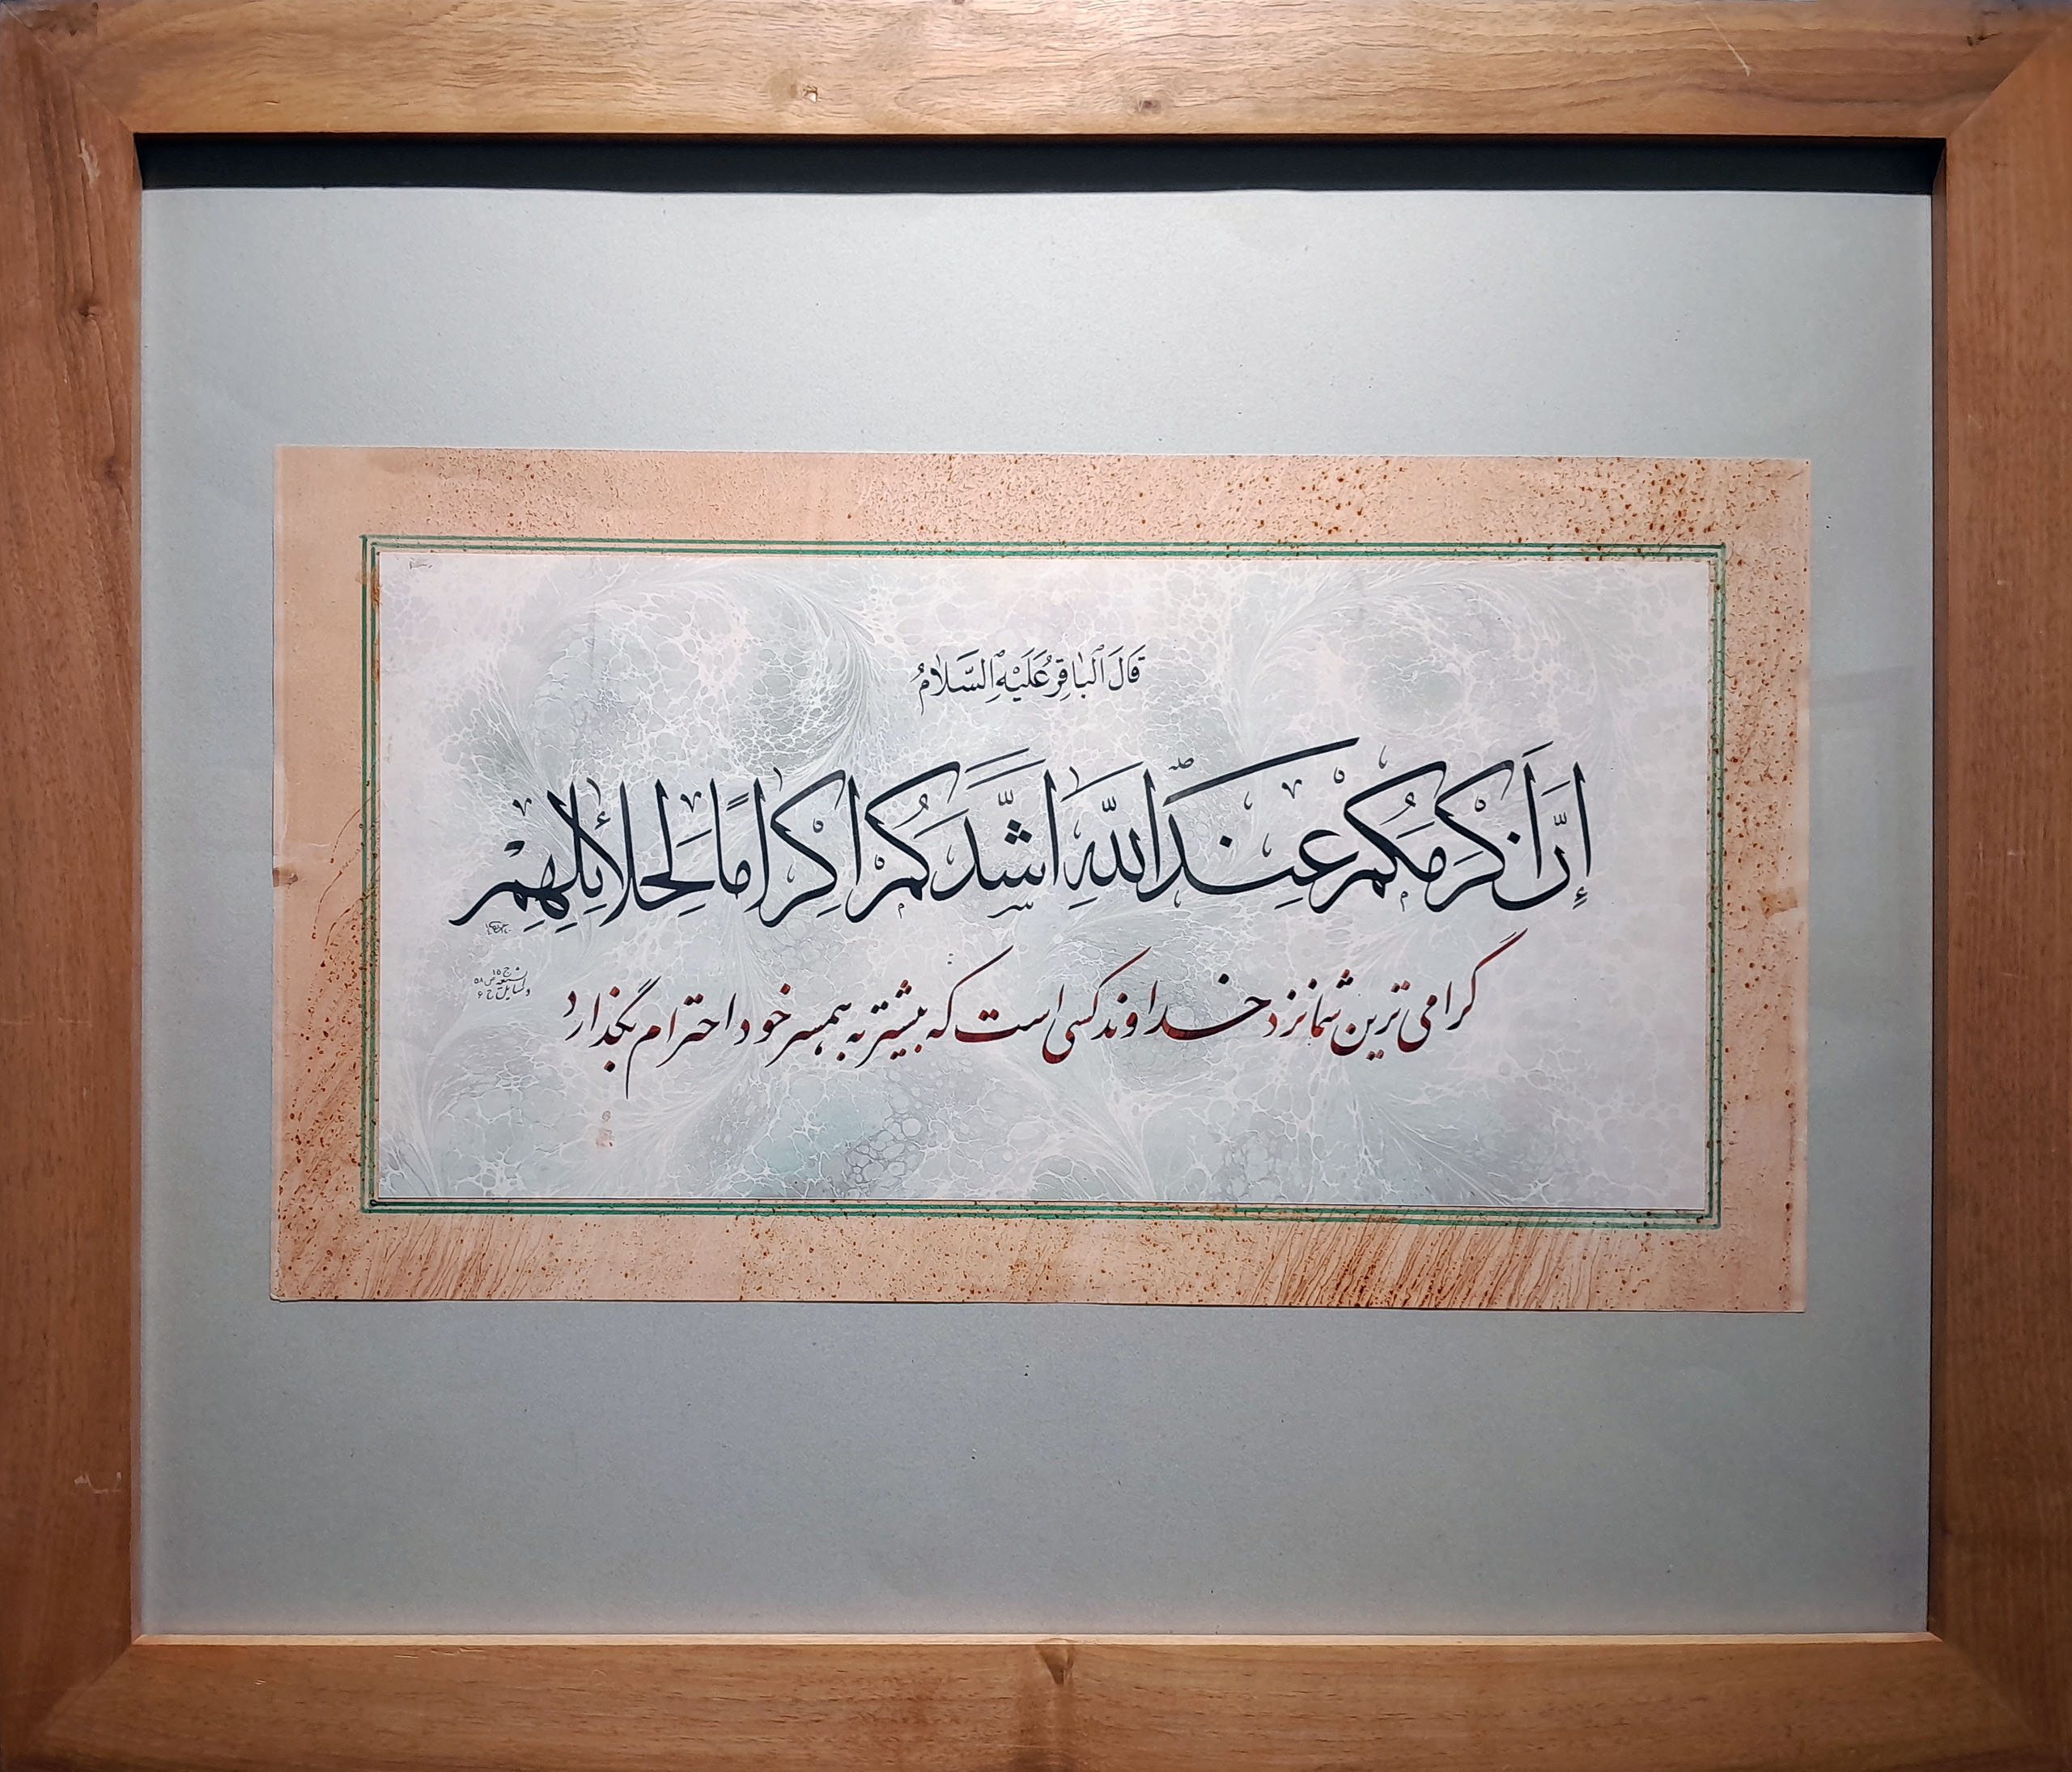 قَالَ ٱلبَاقِرُ عَلَيْهِ ٱلسَّلَامُ
إِنَّ اَكْرَمَكُمْ عِنْدَ اللّٰهِ اَشَدُّكُمْ اِكْرَامًا لِحَلَائِلِهِمْ
گرامی ترین شما نزد خداوند کسی است که بیشتر به همسر خود احترام بگذارد
وسایل الشیعه ج ۱۵ ص ۵۸ ح ۶